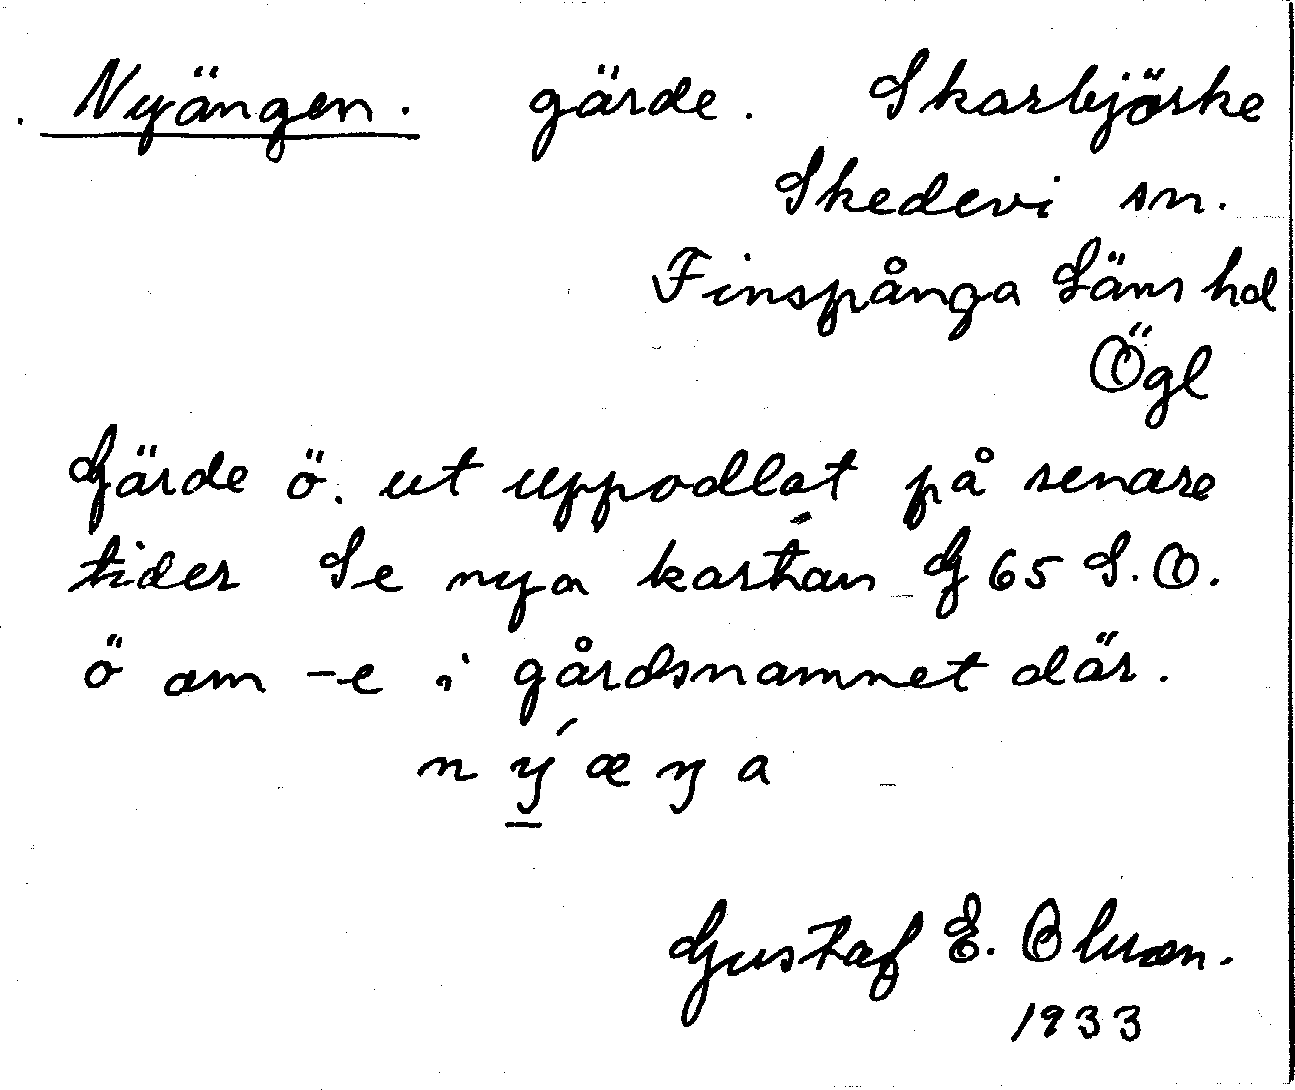 Nyängen. gärde. Skarbjörke
Skedevi sn.
Finspånga Läns hd
Ögl
Gärde ö. ut uppodlat på senare
tider Se nya kartan G 65 S.O.
ö om -e i gårdsnamnet där.
nýæŋa
Gustaf E. Olsson.
1933